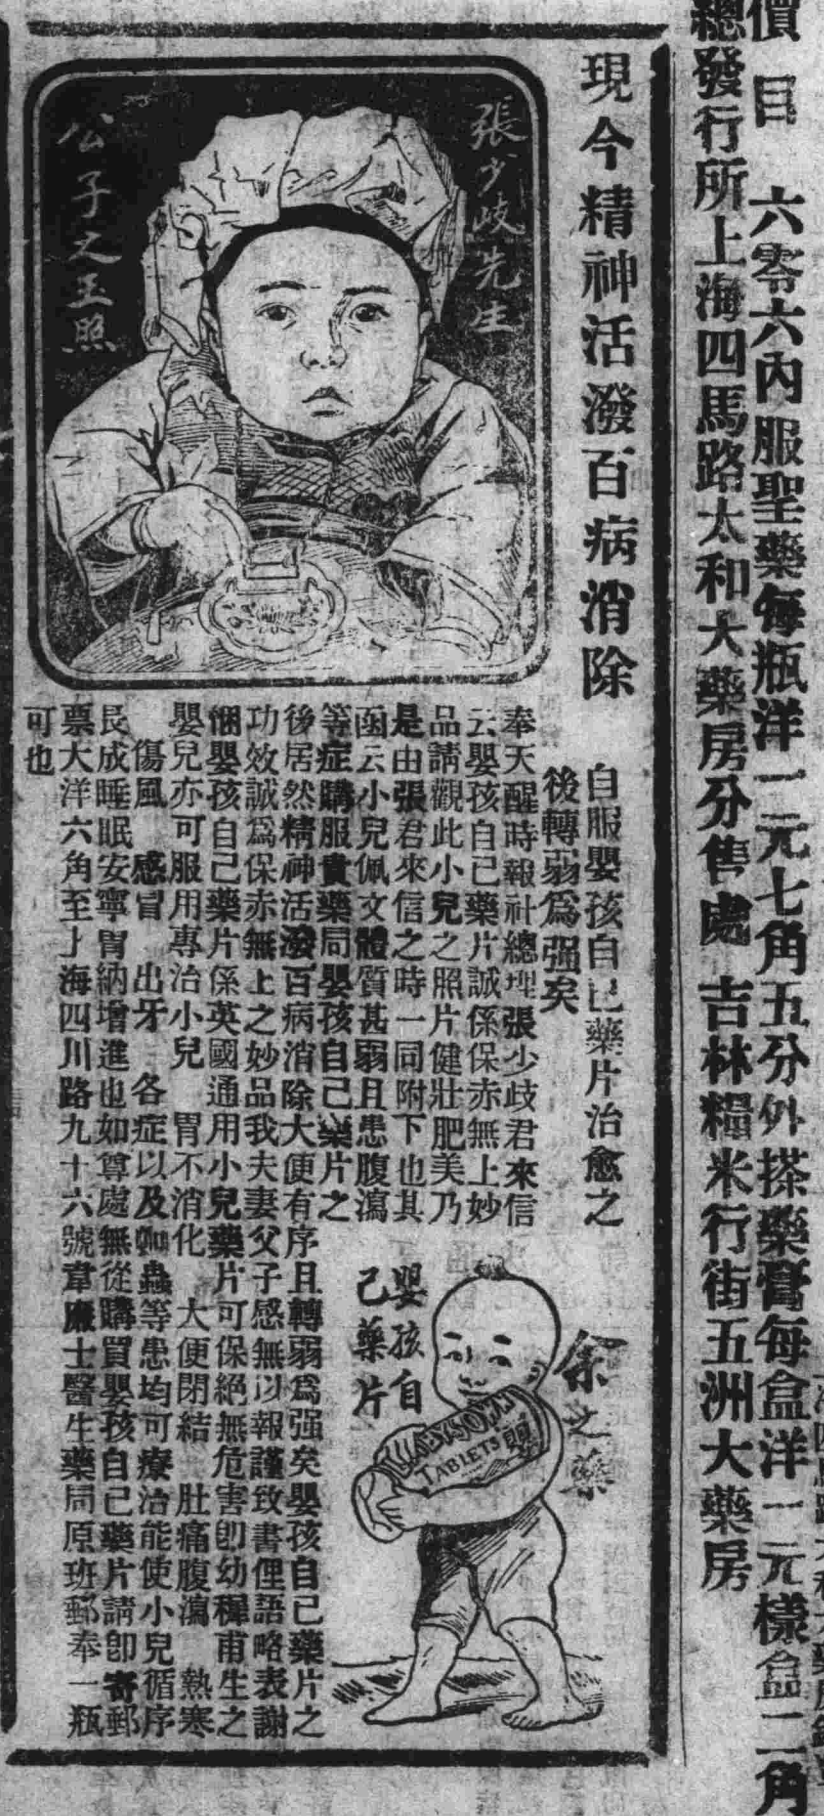 價目 六零六內服聖藥每瓶洋一元七角五分外搽藥膏每盒洋一元樣盒二角
總發行所上海四馬路太和大藥房分售處 吉林糧米行街五洲大藥房
現今精神活潑百病消除
張少岐先生
公子之玉照
自服嬰孩自己藥片治愈之
後轉弱爲强矣
奉天醒時報社總理張少歧君來信
云嬰孩自己藥片誠係保赤無上妙
品請觀此小兒之照片健壯肥美乃
是由張君來信之時一同附下也其
函云小兒佩文體質甚弱且患腹瀉
等症購服貴藥局嬰孩自己藥片之
後居然精神活潑百病消除大便有序且轉弱爲强矣嬰孩自己藥片之
功效誠爲保赤無上之妙品我夫妻父子感無以報謹致書俚語略表謝
悃嬰孩自己藥片係英國通用小兒藥片可保絕無危害卽幼穉甫生之
嬰兒亦可服用專治小兒 胃不消化 大便閉結 肚痛腹瀉 熱寒
傷風 感冒 出牙 各症以及蟲等患均可療治能使小兒循序
長成睡眠安寧胃納增進也如尊處無從購買嬰孩自己藥片請卽寄郵
票大洋六角至上海四川路九十六號韋廉士醫生藥局原班郵奉一瓶
可也
余之藥
嬰孩自
己藥片
BABY'S OWN
TABLETS